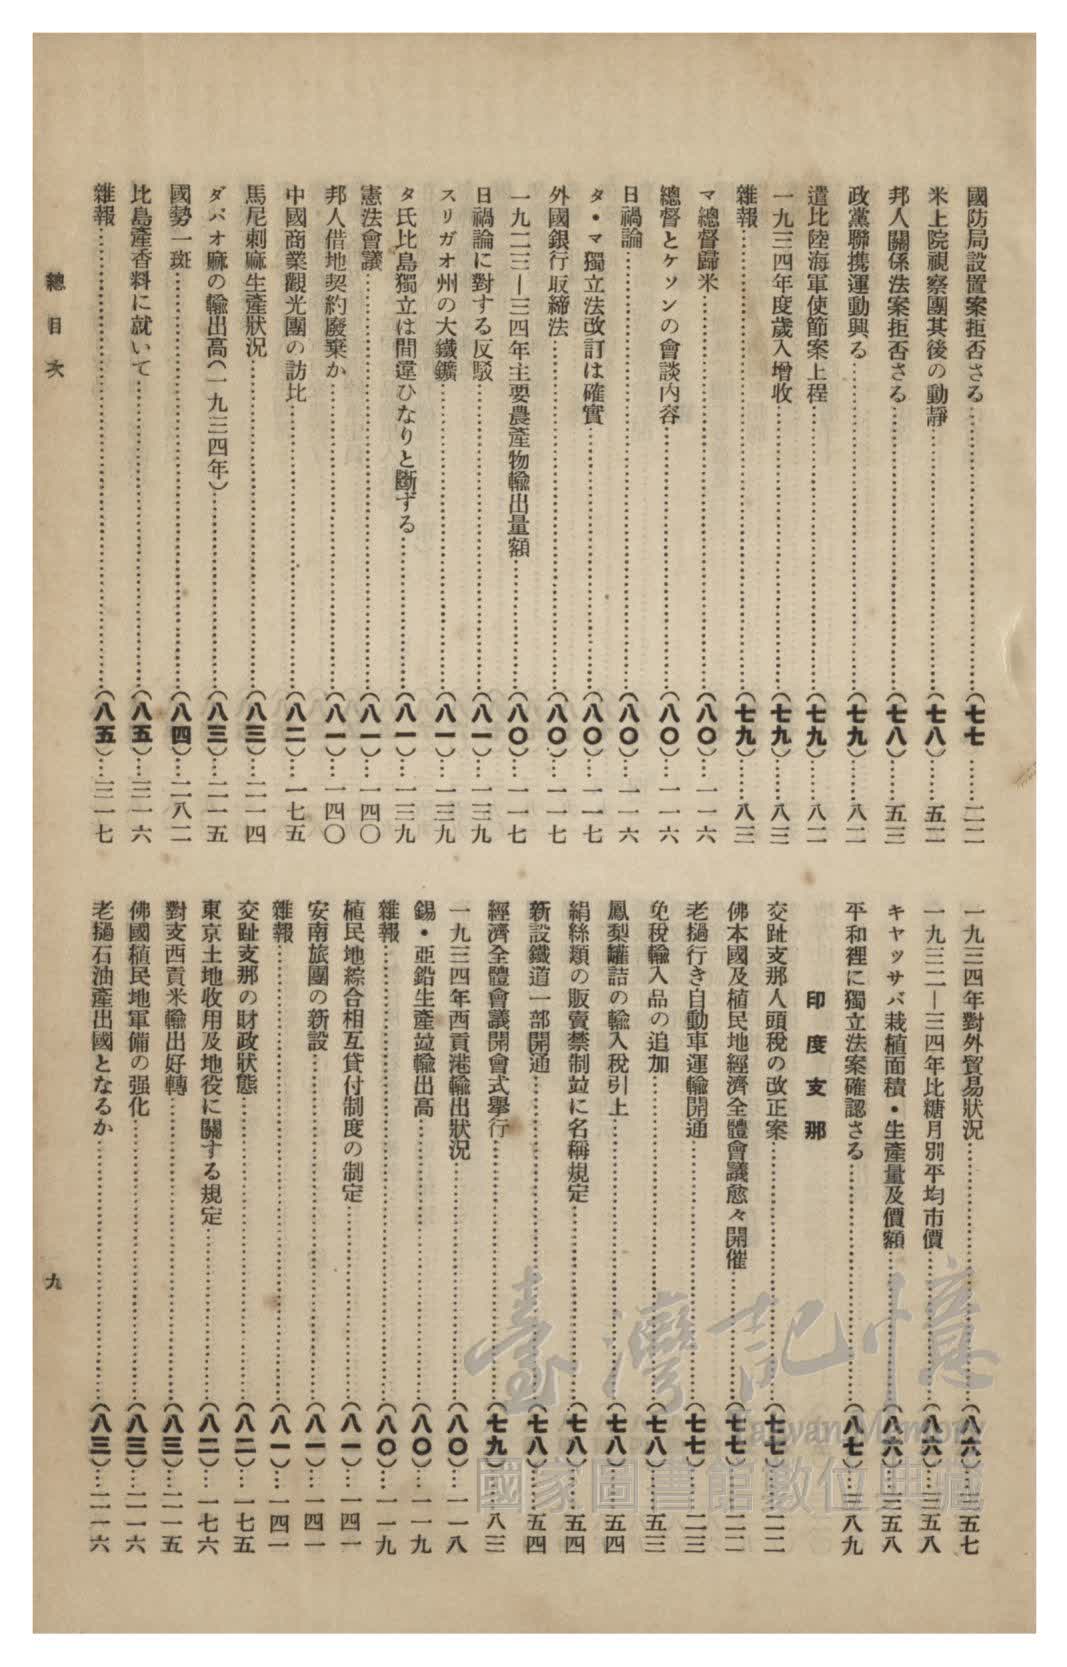 國防局設置案拒否さる……(七七……二二
米上院視察團其後の動靜……(七八)……五二
邦人關係法案拒否さる……(七八)……五三
政黨聯携運動興る……(七九)……八二
遣比陸海軍使節案上程……(七九)……八二
一九三四年度歲入增收……(七九)……八三
雜報……(七九)……八三
マ總督歸米……(八〇)…一一六
總督とケソンの會談內容……(八〇)…一一六
日禍論……(八〇)…一一六
タ・マ獨立法改訂は確實……(八〇)…一一七
外國銀行取締法……(八〇)…一一七
一九二三—三四年主要農產物輸出量額……(八〇)…一一七
日禍論に對する反駁……(八一)…一三九
スリガオ州の大鐵鑛……(八一)…一三九
タ氏比島獨立は間違ひなりと斷ずる……(八一)…一三九
憲法會議……(八一)…一四〇
邦人借地契約廢棄か……(八一)…一四〇
中國商業觀光團の訪比……(八二)…一七五
馬尼剌麻生產狀況……(八三)…二一四
ダバオ麻の輸出高(一九三四年)……(八三)…二一五
國勢一斑……(八四)…二八二
比島產香料に就いて……(八五)…三一六
雜報……(八五)…三一七
一九三四年對外貿易狀況……(八六)…三五七
一九三二—三四年比糖月別平均市價……(八六)…三五八
キャッサバ栽植面積・生產量及價額……(八六)…三五八
平和裡に獨立法案確認さる……(八七)…三八九
印度支那
交趾支那人頭稅の改正案……(七七)……二二
佛本國及植民地經濟全體會議愈々開催……(七七)……二二
老撾行き自動車運輸開通……(七七)……二三
免稅輸入品の追加……(七八)……五三
鳳梨罐詰の輸入稅引上……(七八)……五四
絹絲類の販賣禁制竝に名稱規定……(七八)……五四
新設鐵道一部開通……(七八)……五四
經濟全體會議開會式擧行……(七九)……八三
一九三四年西貢港輸出狀況……(八〇)…一一八
錫・亞鉛生產竝輸出高……(八〇)…一一九
雜報……(八〇)…一一九
植民地綜合相互貸付制度の制定……(八一)…一四一
安南旅團の新設……(八一)…一四一
雜報……(八一)…一四一
交趾支那の財政狀態……(八二)…一七五
東京土地收用及地役に關する規定……(八二)…一七六
對支西貢米輸出好轉……(八三)…二一五
佛國植民地軍備の强化……(八三)…二一六
老撾石油產出國となるか……(八三)…二一六
總目次
九
臺灣記憶
Taiwan Memory
國家圖書館數位典藏